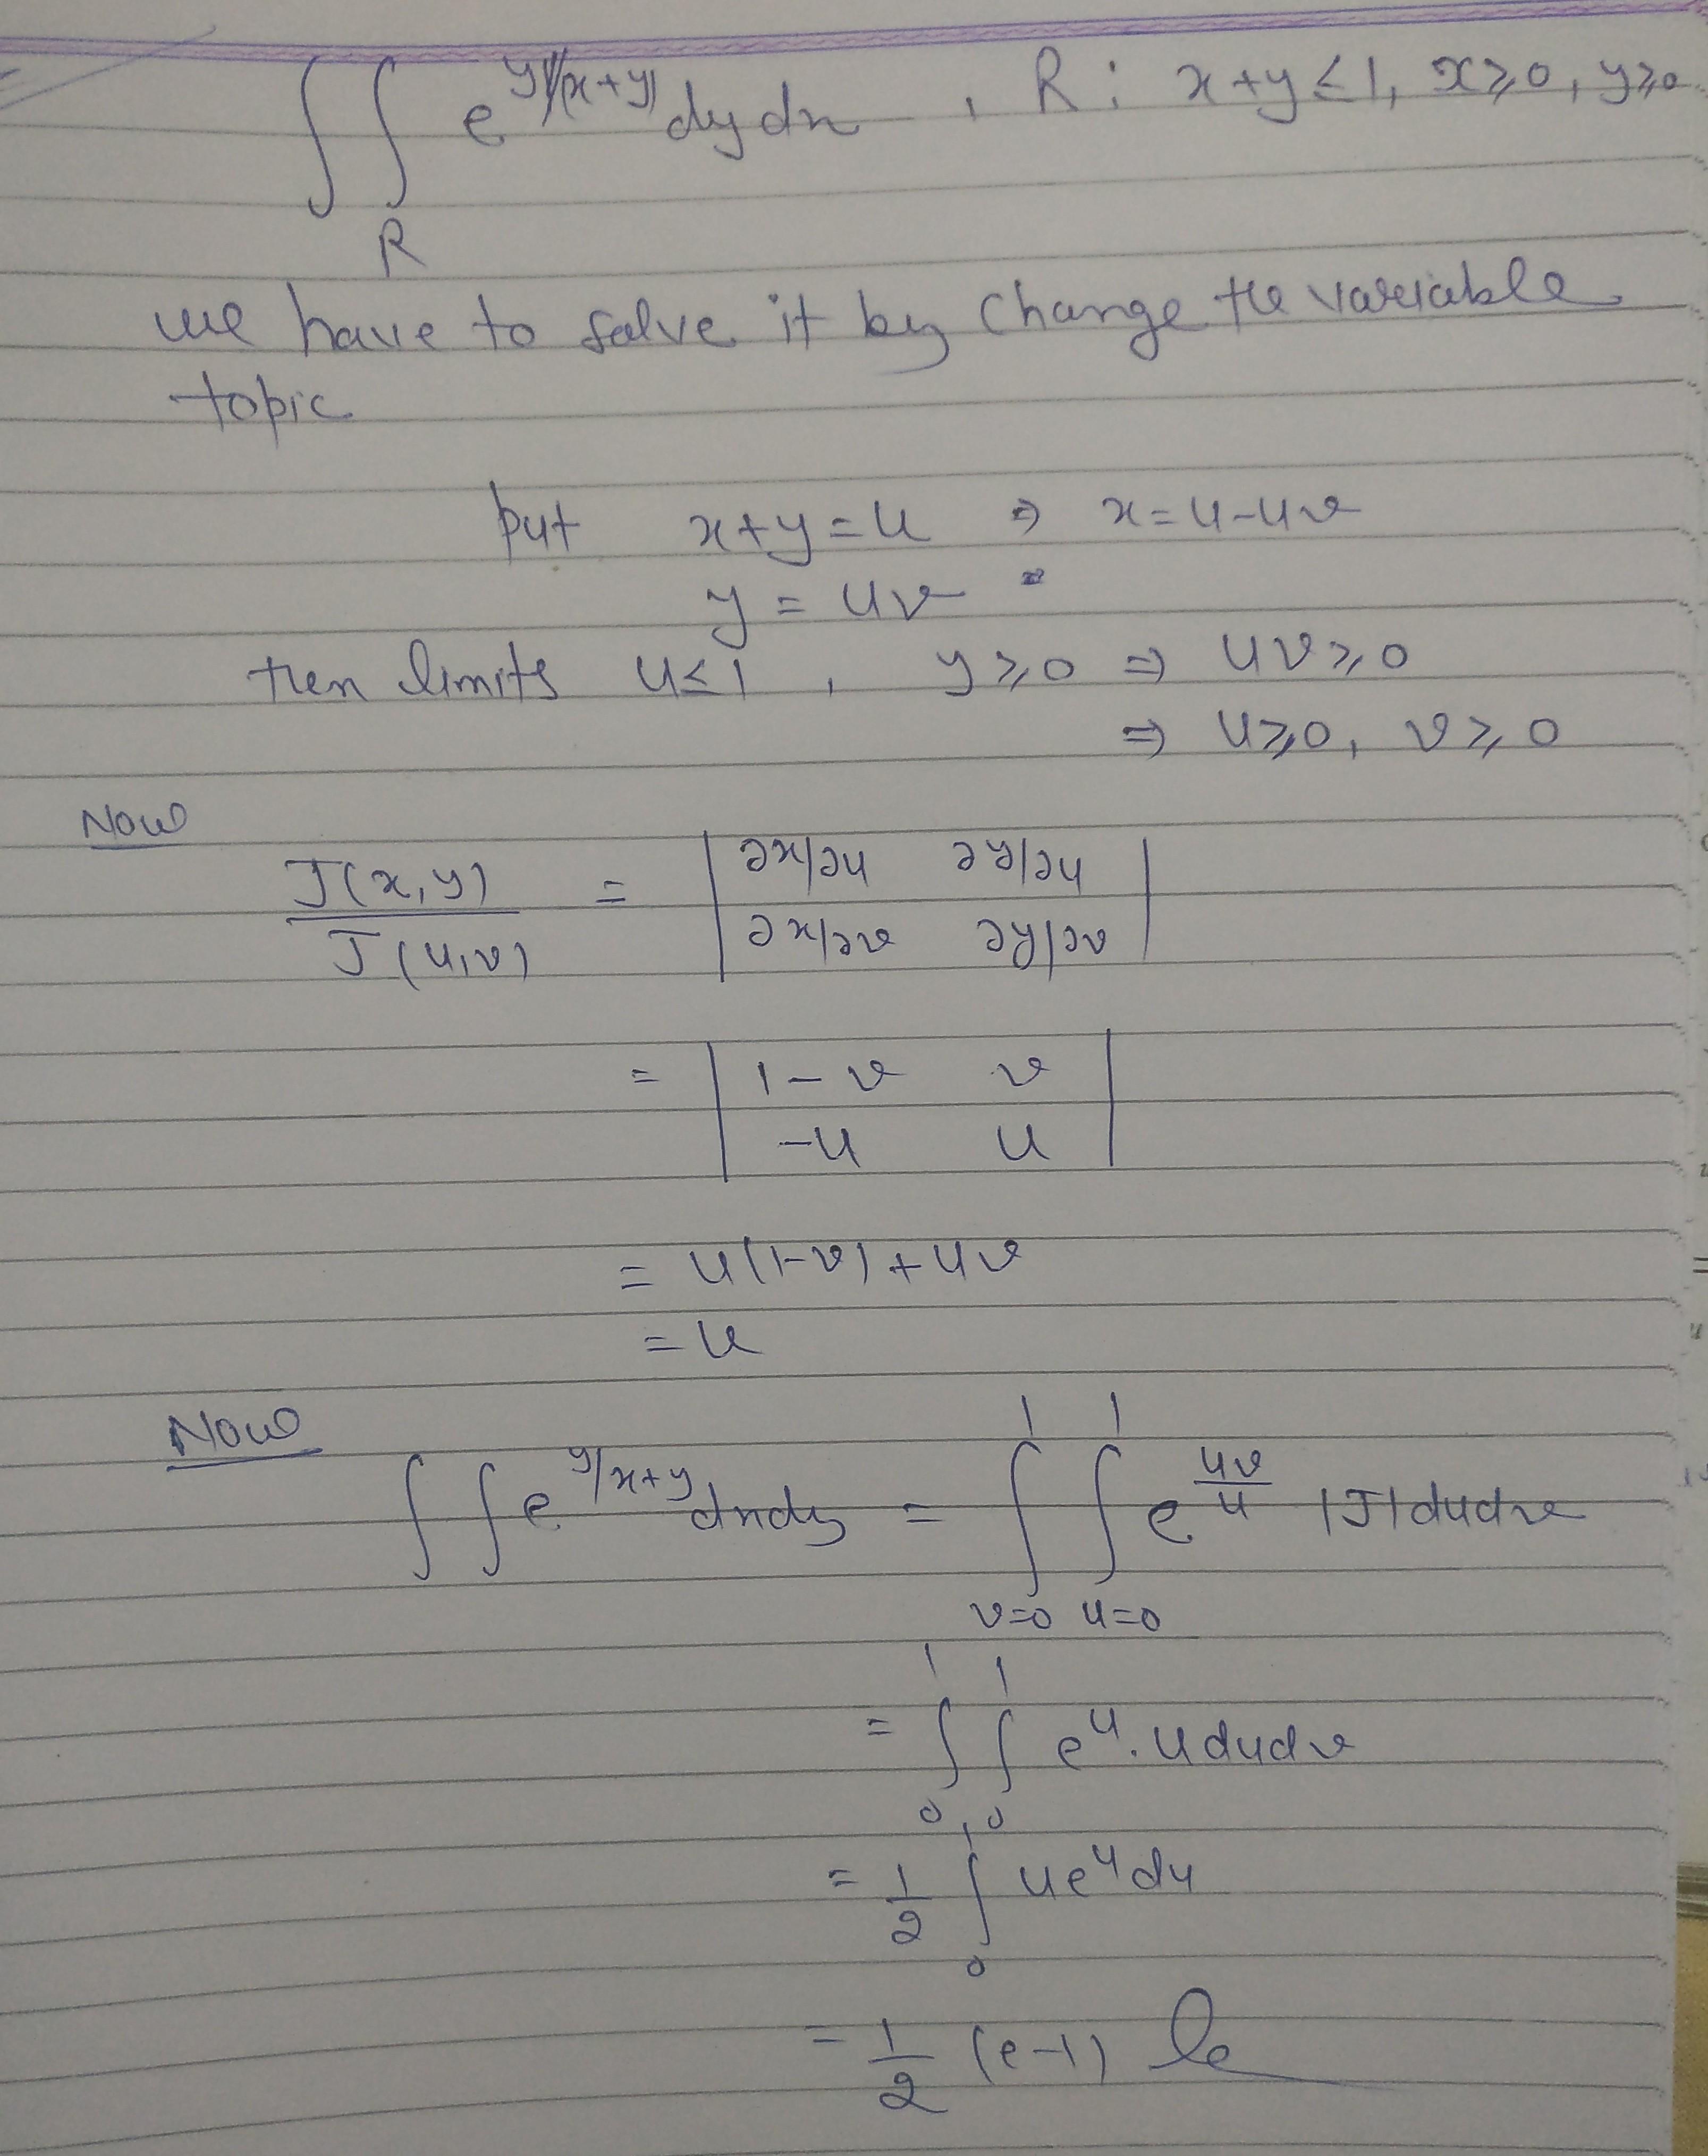 ∫∫_R e^{y/(x+y)} dy dx , R: x+y ≤ 1, x ≥ 0, y ≥ 0
we have to solve it by change the variable
topic
put x+y = u ⇒ x = u-uv
y = uv
then limits u ≤ 1 , y ≥ 0 ⇒ uv ≥ 0
⇒ u ≥ 0, v ≥ 0
Now
J(x,y) / J(u,v) = | ∂x/∂u ∂y/∂u |
| ∂x/∂v ∂y/∂v |
= | 1-v v |
| -u u |
= u(1-v) + uv
= u
Now
∫∫ e^{y/x+y} dx dy = ∫_{v=0}^{1} ∫_{u=0}^{1} e^{uv/u} |J| du dv
= ∫_0^1 ∫_0^1 e^u . u du dv
= 1/2 ∫_0^1 u e^u du
= 1/2 (e-1)